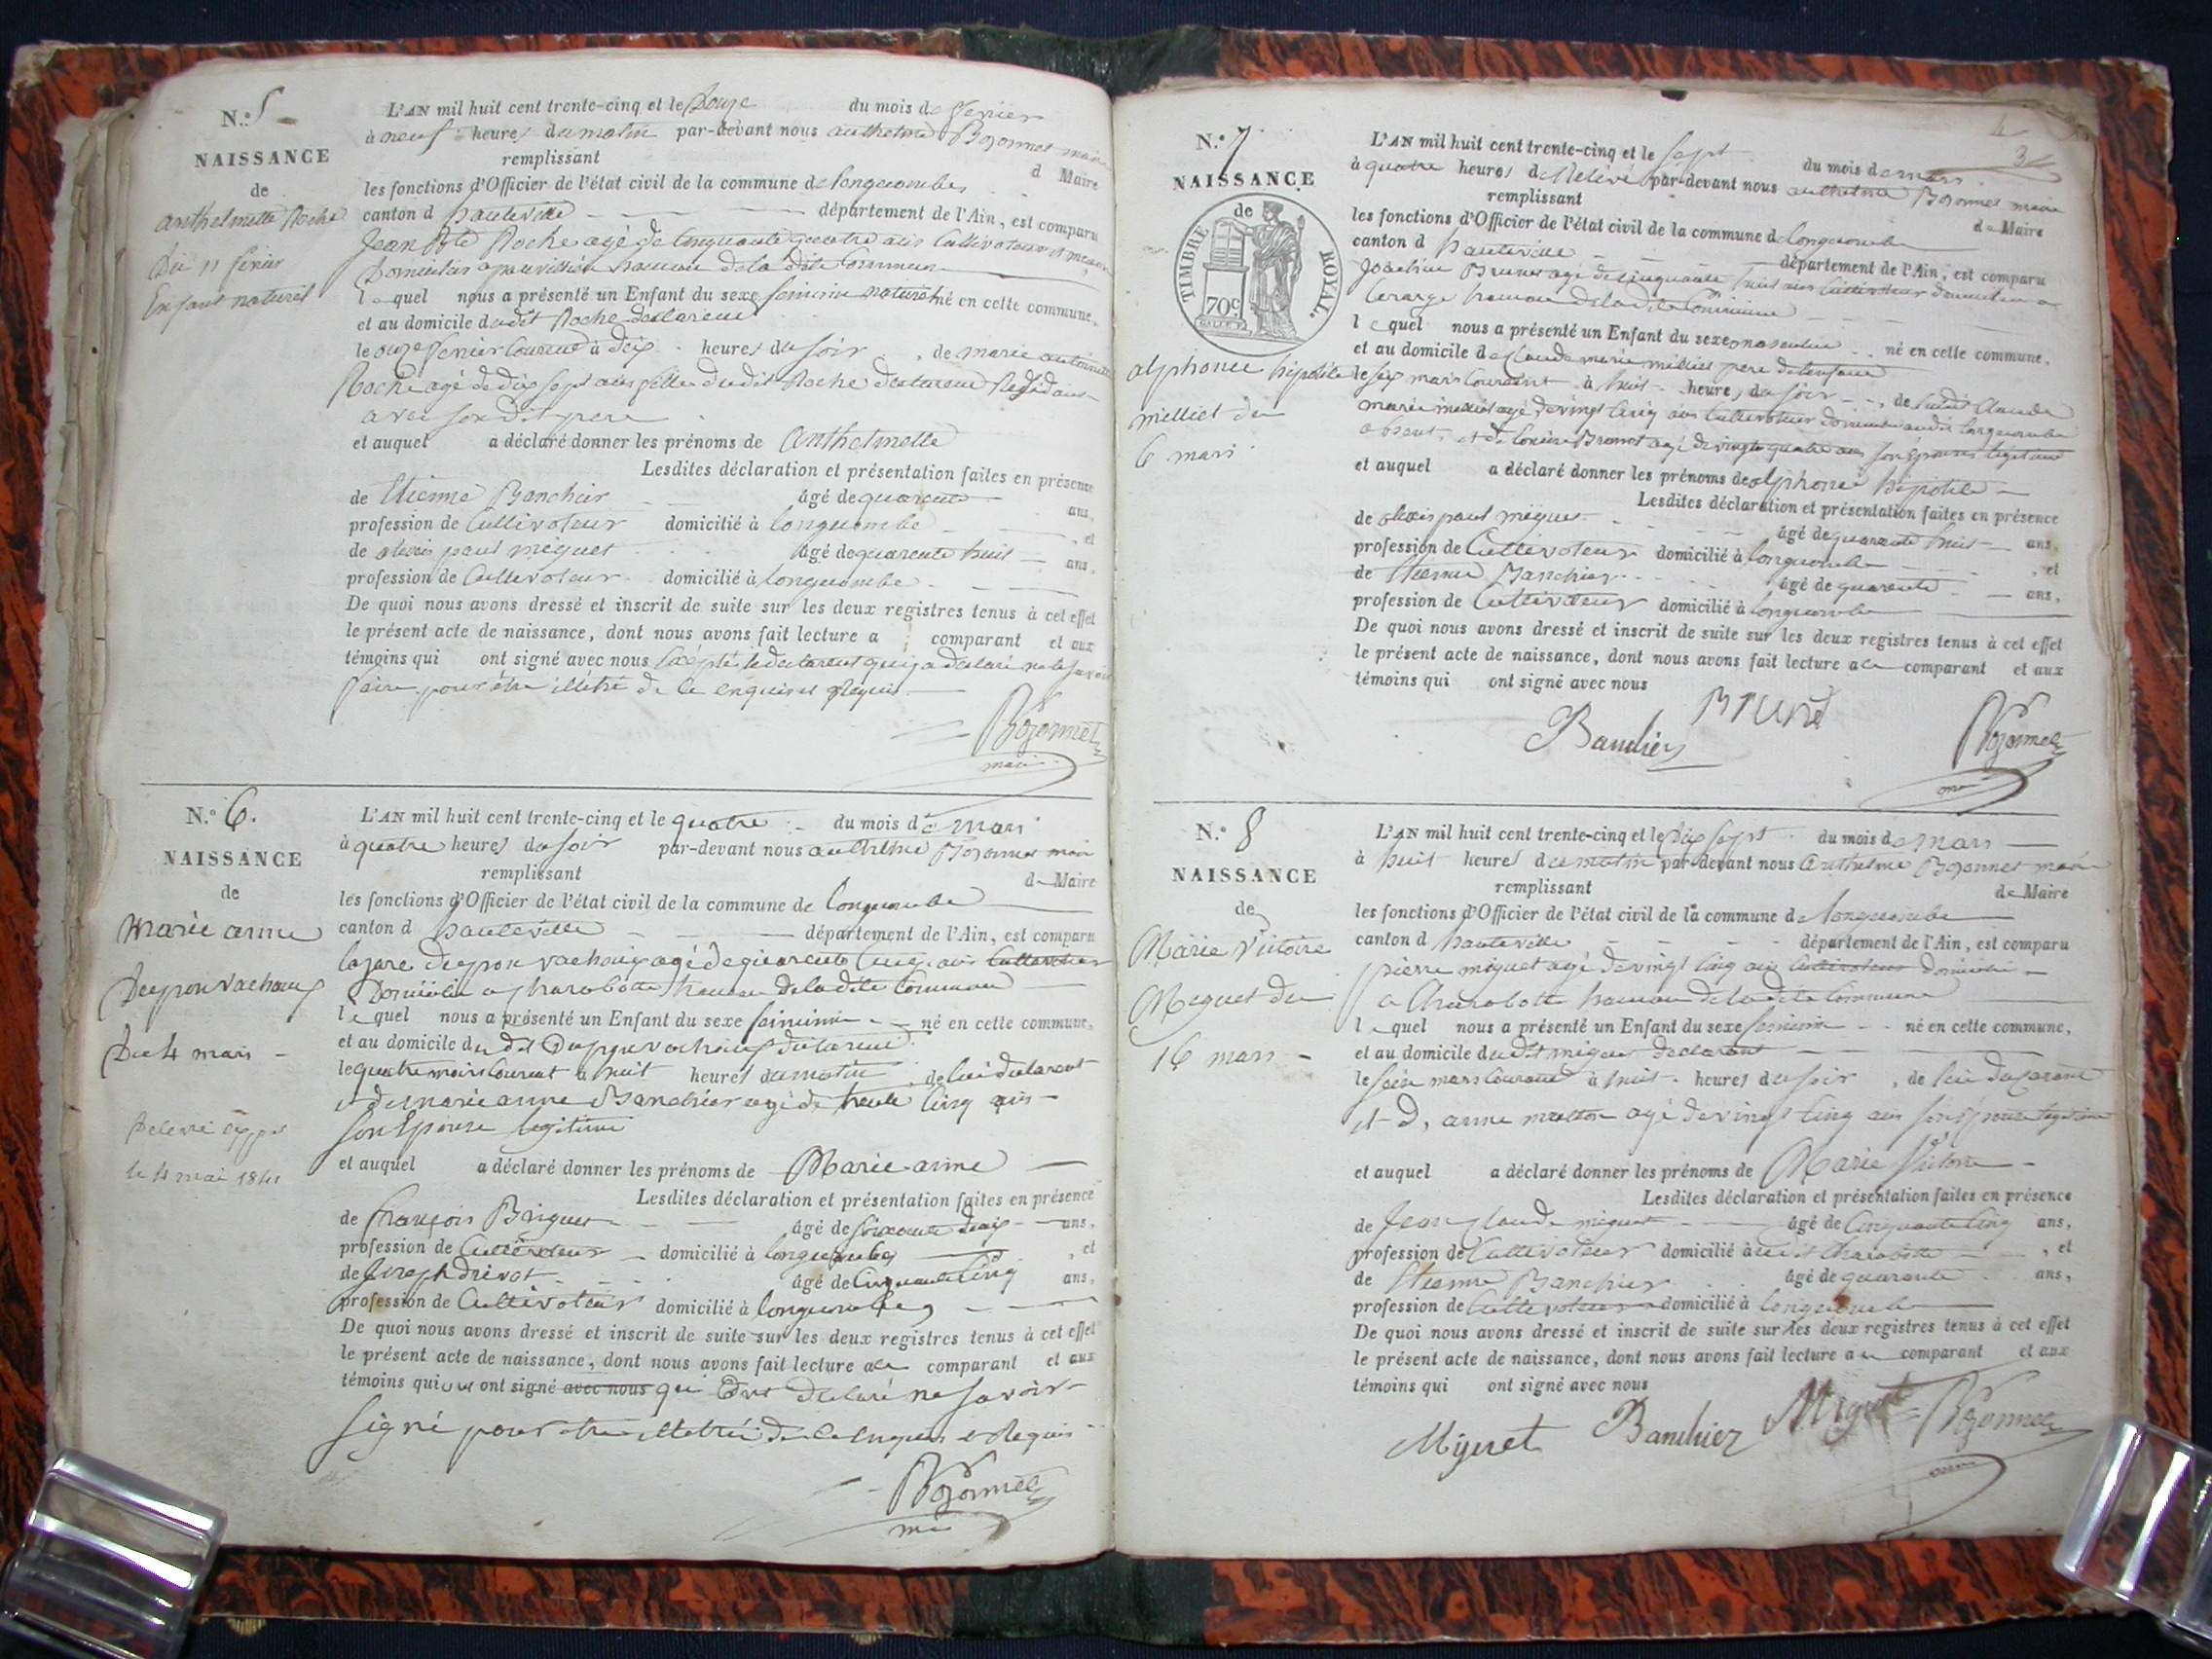 N.º 5
NAISSANCE
de
anthelmette Roche
Du 11 fevrier
Enfant naturel
L'AN mil huit cent trente-cinq et le Douze du mois de fevrier
à neuf heures du matin par-devant nous anthelme Bozonnet maire
remplissant
d Maire
les fonctions d'Officier de l'état civil de la commune de longecombe
canton d hauteville département de l'Ain, est comparu
Jean Roche agé de Cinquante quatre ans Cultivateur
hameau de la dite Commune
lequel nous a présenté un Enfant du sexe feminin naturel né en cette commune,
et au domicile dudit Roche declarent
le onze fevrier Courant à dix heures du soir, de marie antoinette
Roche agé de dix sept ans fille dudit Roche declarent Residant
avec son dit pere
et auquel a déclaré donner les prénoms de Anthelmette
Lesdites déclaration et présentation faites en présence
de Etienne Banchier âgé de quarente ans,
profession de Cultivateur domicilié à longecombe, et
de alexis paul miguet âgé de quarente huit ans,
profession de Cultivateur domicilié à longecombe
De quoi nous avons dressé et inscrit de suite sur les deux registres tenus à cet effet
le présent acte de naissance, dont nous avons fait lecture a comparant et aux
témoins qui ont signé avec nous Excépté le declarent qui a declaré ne le savoir
faire pour être illétré de ce enquis et Requis
Bozonnet
maire
N.º 6.
NAISSANCE
de
Marie anne
Dupont vachoux
Du 4 mars
le 4 mai 1841
L'AN mil huit cent trente-cinq et le quatre du mois de mars
à quatre heures du soir par-devant nous anthelme Bozonnet maire
remplissant
de Maire
les fonctions d'Officier de l'état civil de la commune de longecombe
canton d hauteville département de l'Ain, est comparu
lazare vachoux agé de quarente Cinq ans Cultivateur
Domicilié a charabotte hameau de la dite Commune
lequel nous a présenté un Enfant du sexe feminin né en cette commune,
et au domicile du dit vachoux declarent
le quatre mars Courant à huit heures du matin, de lui declarent
et de marie anne Banchier agé de trente Cinq ans
son Epouse legitime
et auquel a déclaré donner les prénoms de Marie-anne
Lesdites déclaration et présentation faites en présence
de françois Briguet âgé de soixante dix ans,
profession de Cultivateur domicilié à longecombe, et
de Joseph drevot âgé de Cinquante Cinq ans,
profession de Cultivateur domicilié à longecombe
De quoi nous avons dressé et inscrit de suite sur les deux registres tenus à cet effet
le présent acte de naissance, dont nous avons fait lecture au comparant et aux
témoins qui ont signé avec nous qui ont declaré ne savoir
signé pour etre illetré de ce enquis et Requis
Bozonnet
maire
N.º 7
NAISSANCE
de
TIMBRE ROYAL.
70c
alphonce hipolite
milliet du
6 mars
L'AN mil huit cent trente-cinq et le sept du mois de mars
à quatre heures de Relevé par-devant nous anthelme Bozonnet maire
remplissant
de Maire
les fonctions d'Officier de l'état civil de la commune de longecombe
canton d hauteville département de l'Ain, est comparu
Joachim Brunet agé de Cinquante huit ans Cultivateur domicilié a
hameau de la dite Commune
lequel nous a présenté un Enfant du sexe masculin né en cette commune,
et au domicile de Claude marie milliet pere de lenfant
le six mars Courant à huit heures du soir, de sudit Claude
marie milliet agé de vingt Cinq ans Cultivateur domicilié audit longecombe
absent, et de Brunet agé de vingt quatre ans son Epouse legitime
et auquel a déclaré donner les prénoms de alphonce hipolite
Lesdites déclaration et présentation faites en présence
de alexis paul miguet âgé de quarente huit ans,
profession de Cultivateur domicilié à longecombe, et
de Etienne Banchier âgé de quarente ans,
profession de Cultivateur domicilié à longecombe
De quoi nous avons dressé et inscrit de suite sur les deux registres tenus à cet effet
le présent acte de naissance, dont nous avons fait lecture au comparant et aux
témoins qui ont signé avec nous
Brunet
Banchier
Bozonnet
N.º 8
NAISSANCE
de
Marie Victoire
Miguet du
16 mars
L'AN mil huit cent trente-cinq et le dix sept du mois de mars
à huit heures du matin par-devant nous Anthelme Bozonnet maire
remplissant
de Maire
les fonctions d'Officier de l'état civil de la commune de longecombe
canton d hauteville département de l'Ain, est comparu
pierre miguet agé de vingt Cinq ans Cultivateur Domicilié
a Charabotte hameau de la dite Commune
lequel nous a présenté un Enfant du sexe feminin né en cette commune,
et au domicile dudit miguet declarant
le seize mars Courant à huit heures du soir, de lui declarant
et d, anne agé de vingt Cinq ans son Epouse legitime
et auquel a déclaré donner les prénoms de Marie Victoire
Lesdites déclaration et présentation faites en présence
de Jean Claude miguet âgé de Cinquante Cinq ans,
profession de Cultivateur domicilié à charabotte, et
de Etienne Banchier âgé de quarente ans,
profession de Cultivateur domicilié à longecombe
De quoi nous avons dressé et inscrit de suite sur les deux registres tenus à cet effet
le présent acte de naissance, dont nous avons fait lecture au comparant et aux
témoins qui ont signé avec nous
Miguet Banchier Miguet Bozonnet